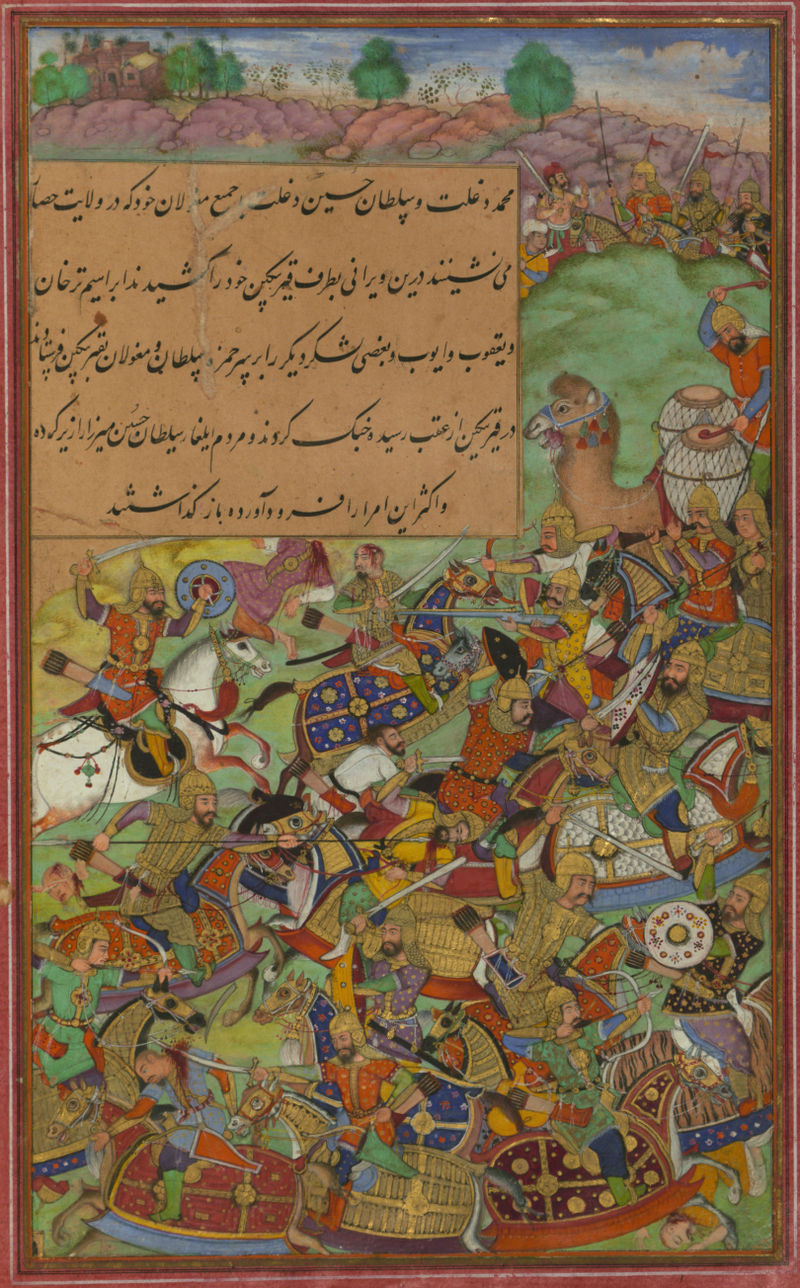 محمد دغلت و سلطان حسین دغلت با جمع مغولان خود که در ولایت حصار
می نشینند درین ویرانی بطرف قیرتکین خود را کشیدند ابراهیم ترخان
و یعقوب و ایوب و بعضی لشکر دیگر را بر سر حمزه سلطان و مغولان بقیرتکین فرستادند
در قیرتکین از عقب رسیده جنک کردند و مردم ایلغار سلطان حسین میرزا را زیر کرده
و اکثر این امرا را فرود آورده باز گذاشتند